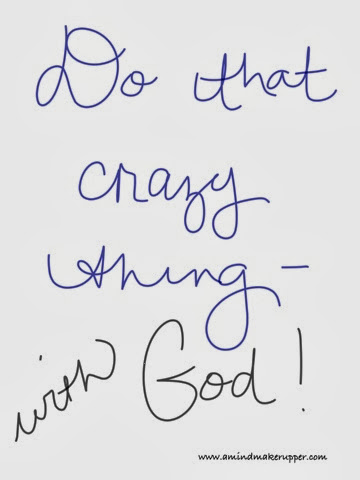 Do that
crazy
thing -
with God!
www.amindmakerupper.com